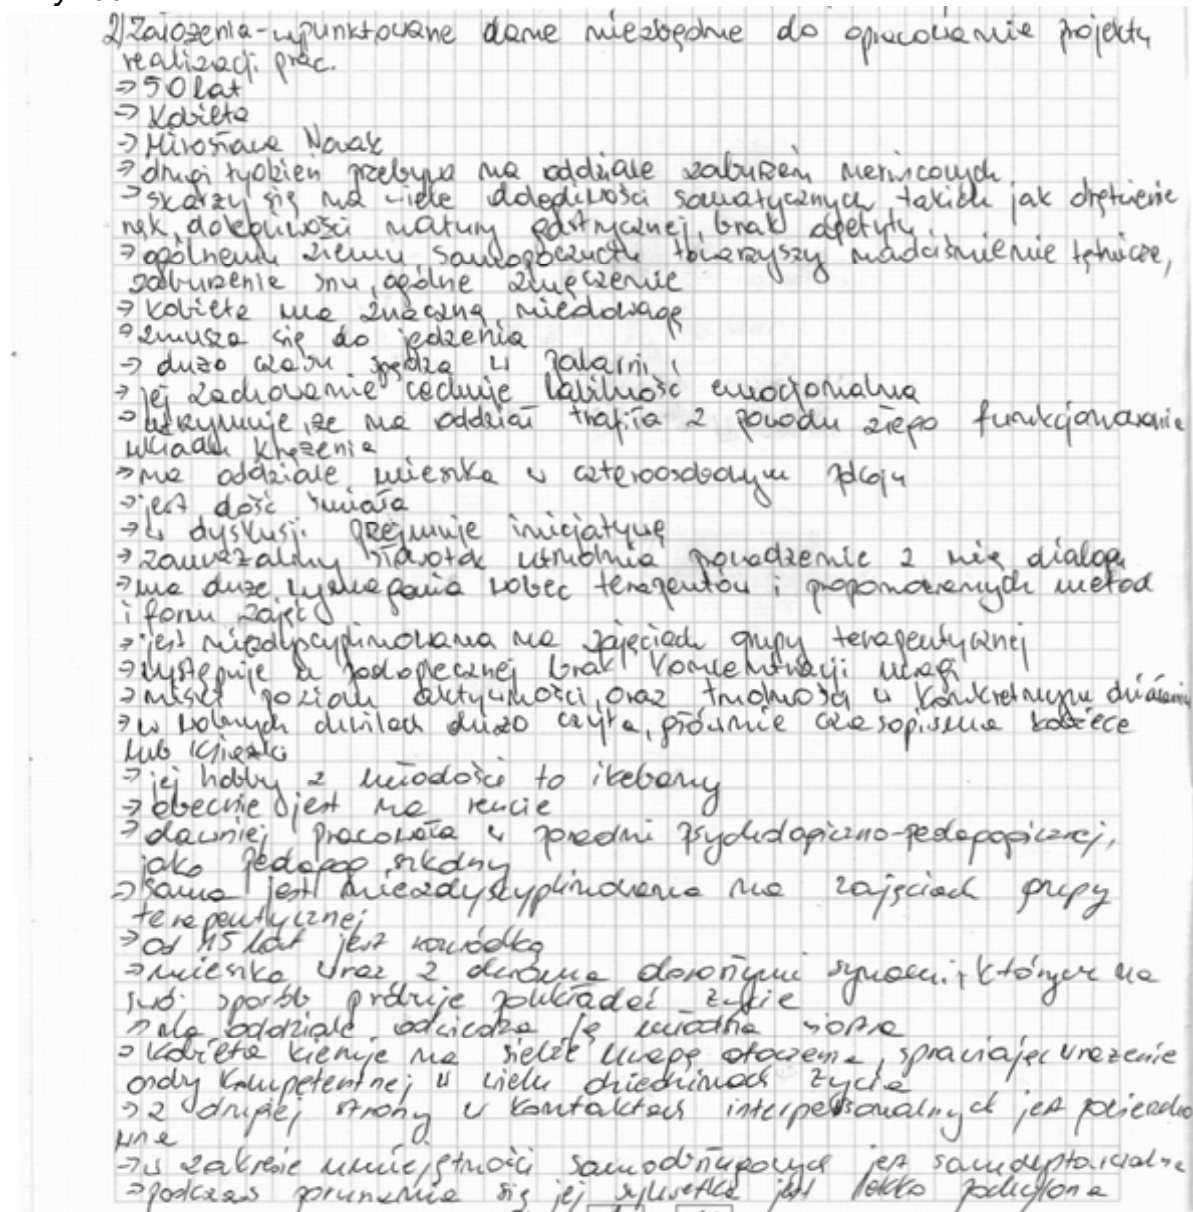 2) Założenia - wypunktowane dane niezbędne do opracowanie projektu
realizacji prac.
→ 50 lat
→ Kobieta
→ Mirosława Nowak
→ drugi tydzień przebywa na oddziale zaburzeń nerwicowych
→ skarży się na wiele dolegliwości somatycznych takich jak drętwienie
rąk, dolegliwości natury gastrycznej, brak apetytu
→ ogólnemu złemu samopoczuciu towarzyszy nadciśnienie tętnicze,
zaburzenie snu, ogólne zmęczenie
→ kobieta ma znaczną niedowagę
→ zmusza się do jedzenia
→ dużo czasu spędza w palarni
→ jej zachowanie cechuje labilność emocjonalna
→ utrzymuje, że na oddział trafiła z powodu złego funkcjonowania
układu krążenia
→ na oddziale mieszka w czteroosobowym pokoju
→ jest dość śmiała
→ w dyskusji przejmuje inicjatywę
→ zauważalny słowotok utrudnia prowadzenie z nią dialogu
→ ma duże wymagania wobec terapeutów i proponowanych metod
i form zajęć
→ jest niezdyscyplinowana na zajęciach grupy terapeutycznej
→ występuje u podopiecznej brak koncentracji uwagi
→ niski poziom aktywności, oraz trudności w konkretnym działaniu
→ w wolnych chwilach dużo czyta, głównie czasopisma kobiece
lub książki
→ jej hobby z młodości to ikebany
→ obecnie jest na rencie
→ dawniej pracowała w poradni psychologiczno-pedagogicznej,
jako pedagog szkolny
→ sama jest niezdyscyplinowana na zajęciach grupy
terapeutycznej
→ od 15 lat jest rozwódką
→ mieszka wraz z dwoma dorosłymi synami, których na
swój sposób próbuje poukładać życie
→ Na oddziale odwiedza ją młodsza siostra
→ kobieta kieruje na siebie uwagę otoczenia, sprawiając wrażenie
osoby kompetentnej w wielu dziedzinach życia
→ z drugiej strony w kontaktach interpersonalnych jest
→ w zakresie umiejętności samoobsługowych jest samowystarczalna
→ podczas poruszania się jej sylwetka jest lekko pochylona